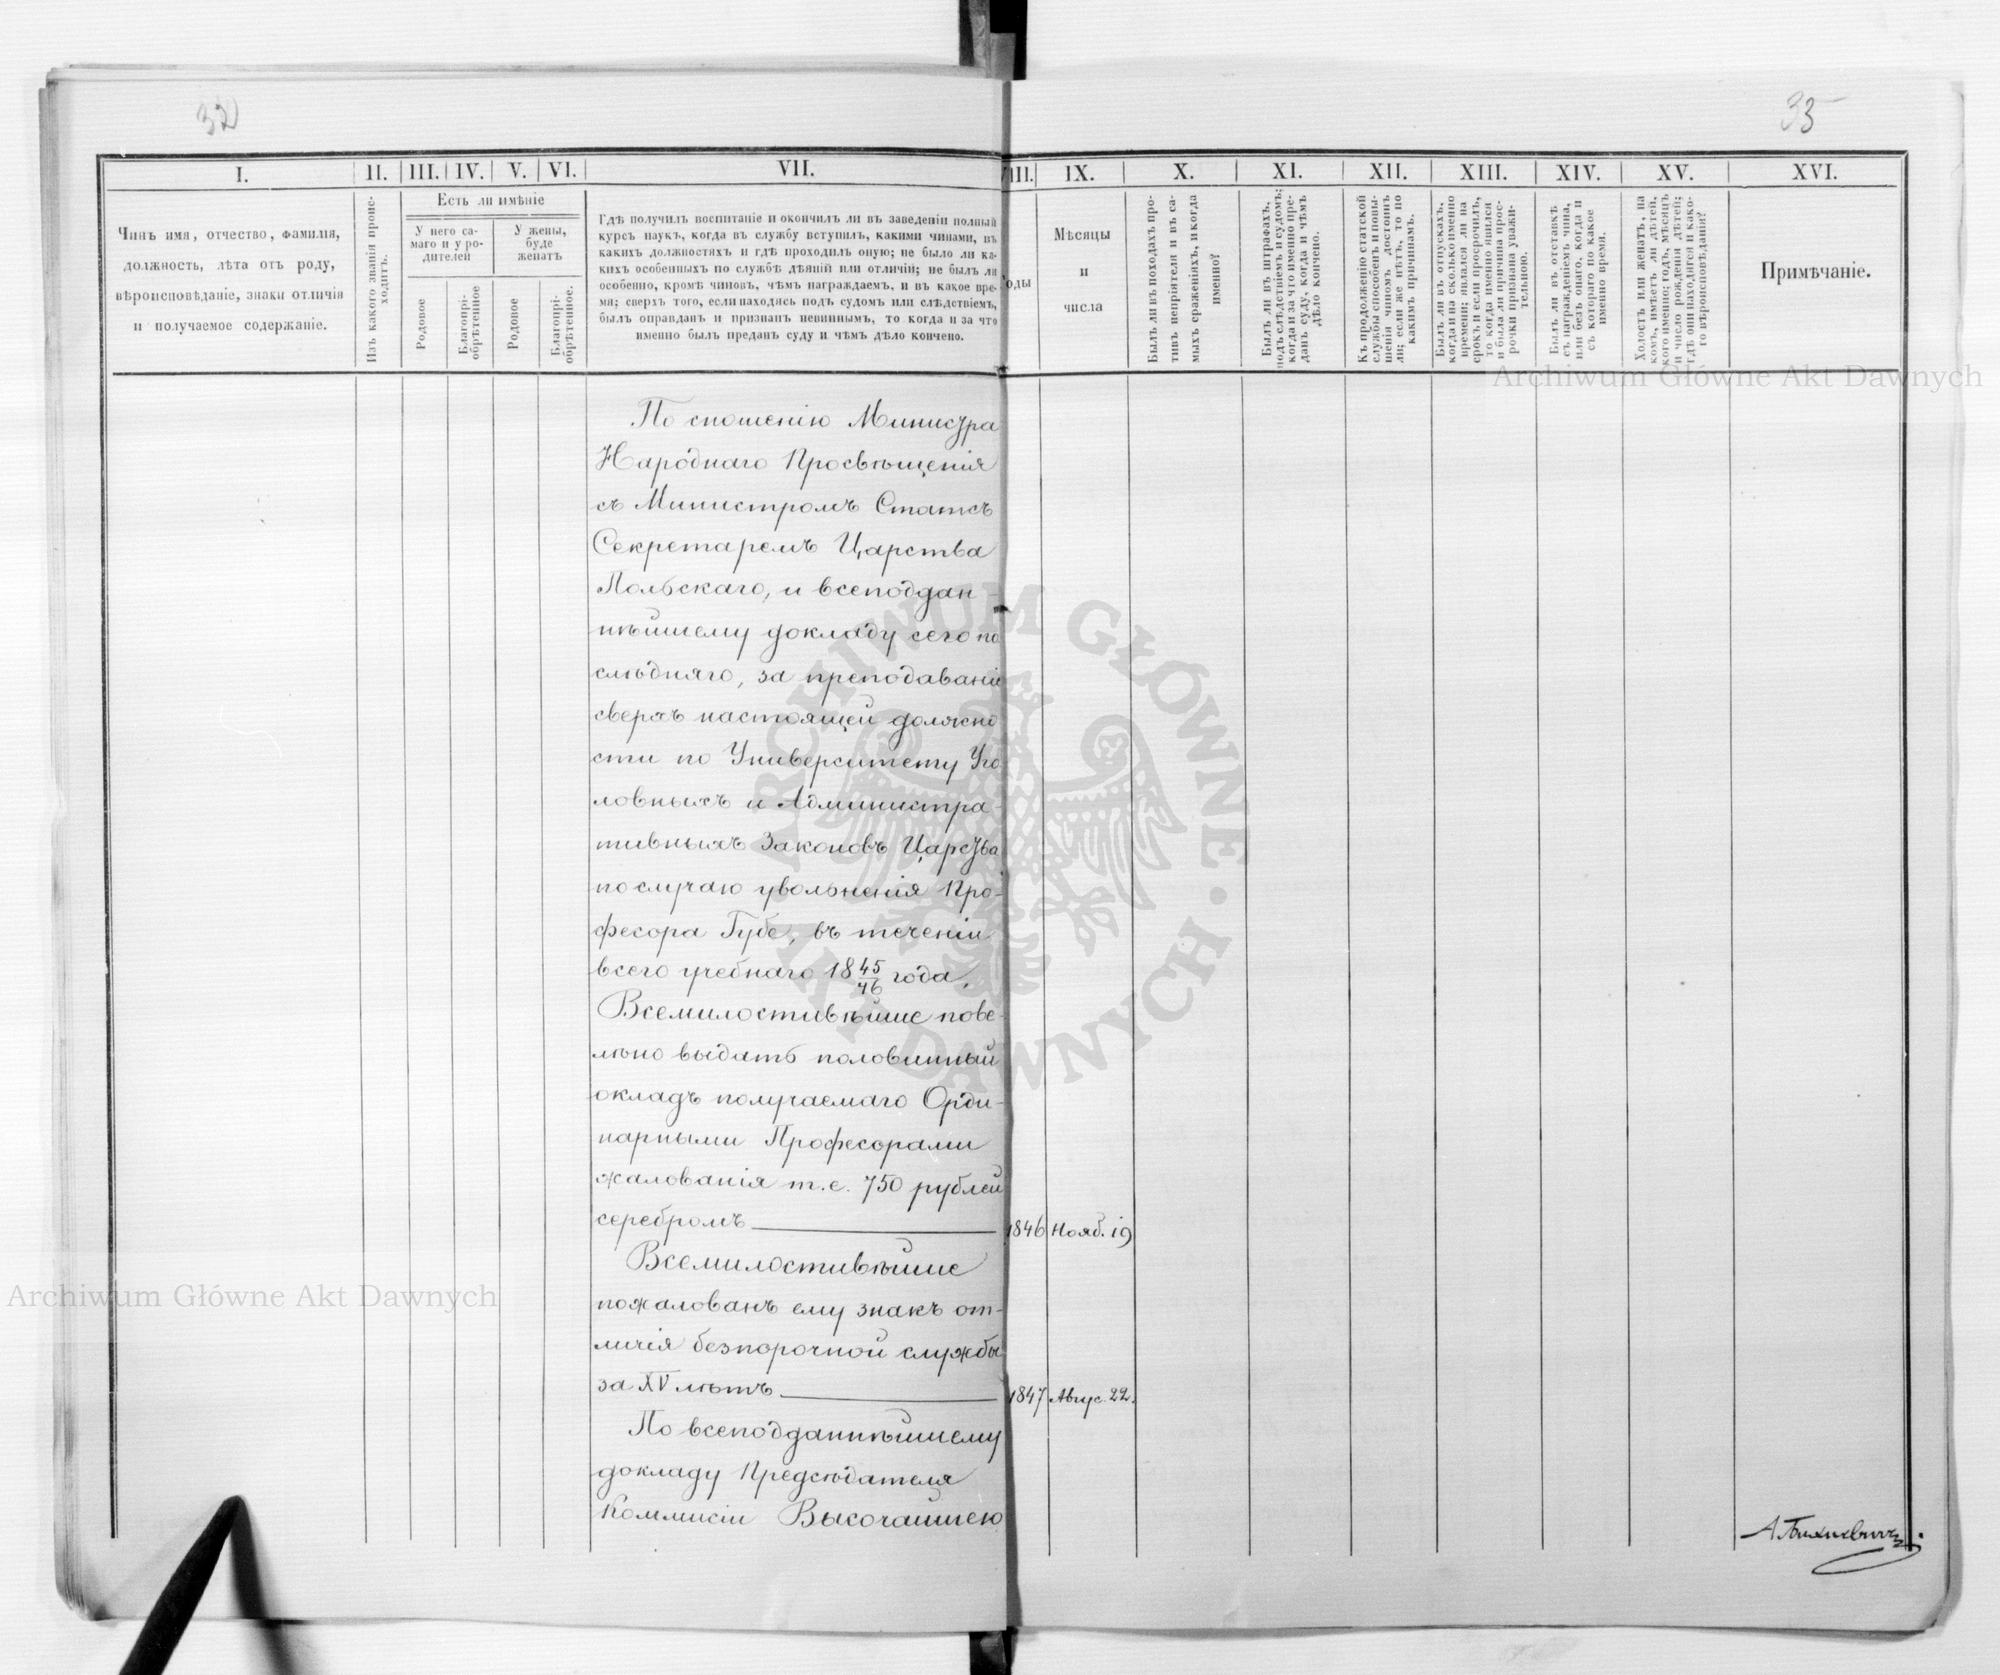 32
35
I.
II.
III.
IV.
V.
VI.
VII.
III.
IX.
X.
XI.
XII.
XIII.
XIV.
XV.
XVI.
Чинъ имя, отчество, фамилія,
должность, лѣта отъ роду,
вѣроисповѣданіе, знаки отличія
и получаемое содержаніе.
Изъ какого званія проис-
ходитъ.
Есть ли имѣніе
У него са-
маго и у ро-
дителей
У жены,
буде
женатъ
Родовое
Благопрі-
обрѣтенное
Родовое
Благопрі-
обрѣтенное.
Гдѣ получилъ воспитаніе и окончилъ ли въ заведеніи полный
курсъ наукъ, когда въ службу вступилъ, какими чинами, въ
какихъ должностяхъ и гдѣ проходилъ оную; не было ли ка-
кихъ особенныхъ по службѣ дѣяній или отличій; не былъ ли
особенно, кромѣ чиновъ, чѣмъ награждаемъ, и въ какое вре-
мя; сверхъ того, если находясь подъ судомъ или слѣдствіемъ,
былъ оправданъ и признанъ невиннымъ, то когда и за что
именно былъ преданъ суду и чѣмъ дѣло кончено.
оды
Мѣсяцы
и
числа
Былъ ли въ походахъ про-
тивъ непріятеля и въ са-
мыхъ сраженіяхъ, и когда
именно?
Былъ ли въ штрафахъ,
подъ слѣдствіемъ и судомъ;
когда и за что именно пре-
данъ суду, когда и чѣмъ
дѣло кончено.
Къ продолженію статской
службы способенъ и повы-
шенія чиномъ достоинъ
ли; если же нѣтъ, то по
какимъ причинамъ.
Былъ ли въ отпускахъ,
когда и на сколько именно
времени; являлся ли на
срокъ и если просрочилъ,
то когда именно явился
и была ли причина прос-
рочки признана уважи-
тельною.
Былъ ли въ отставкѣ
съ награжденіемъ чина,
или безъ онаго, когда и
съ котораго по какое
именно время.
Холостъ или женатъ, на
комъ, имѣетъ ли дѣтей,
кого именно; годъ, мѣсяцъ
и число рожденія дѣтей;
гдѣ они находятся и како-
го вѣроисповѣданія?
Примѣчаніе.
По сношенію Министра
Народнаго Просвѣщенія
съ Министромъ Статсъ
Секретаремъ Царства
Польскаго, и всеподдан-
нѣйшему докладу сего по
слѣдняго, за преподаваніе
сверхъ настоящей должно
сти по Университету Уго
ловныхъ и Администра-
тивныхъ Законовъ Царства
по случаю увольненія Про-
фесора Губе, въ теченіи
всего учебнаго 18 45/46 года,
Всемилостивѣйше пове-
лѣно выдать половинный
окладъ получаемаго Орди-
нарными Професорами
жалованія т.е. 750 рублей
серебромъ 1846 Нояб. 19
Всемилостивѣйше
пожалованъ ему знакъ от-
личія безпорочной службы
за XV лѣтъ 1847 Авгус. 22.
По всеподданнѣйшему
докладу Предсѣдателя
Коммисіи Высочайшею
Archiwum Główne Akt Dawnych
Archiwum Główne Akt Dawnych
ARCHIWUM GŁÓWNE · AKT DAWNYCH ·